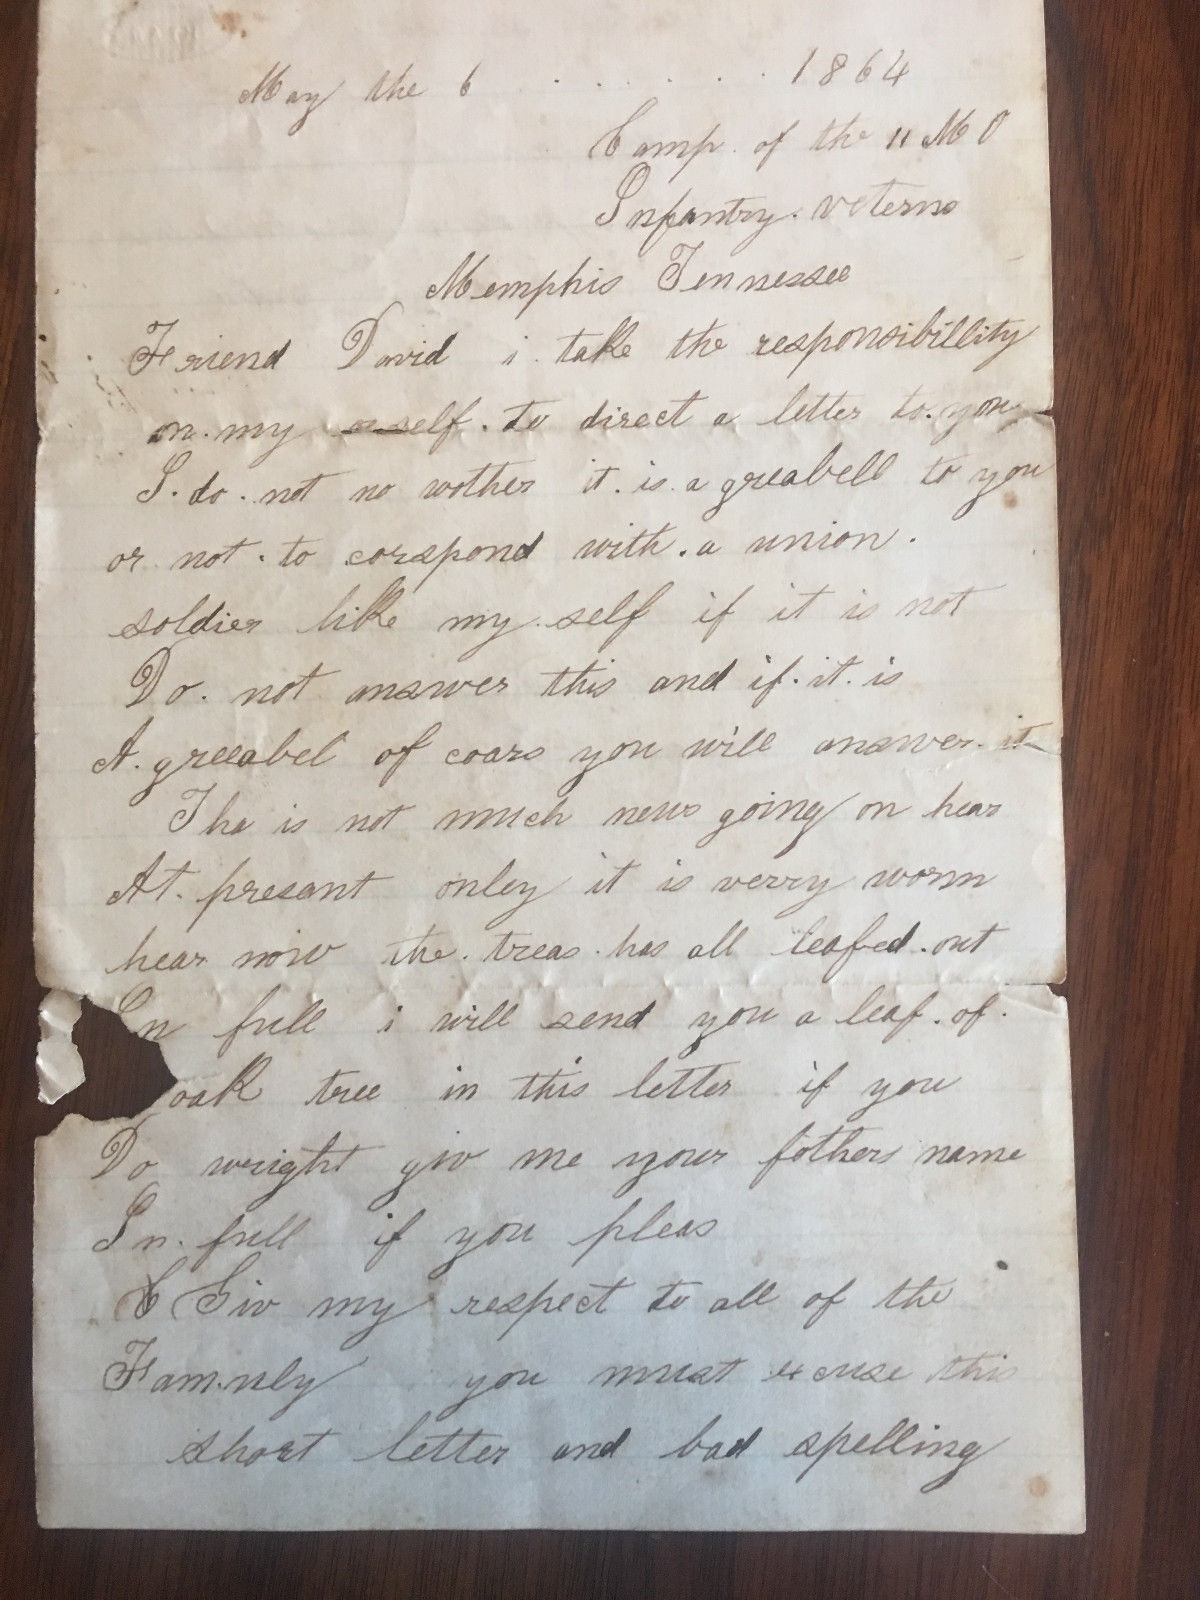 May the 6 . . . . . . 1864
Camp. of the 11 MO
Infantry. veterns
Memphis Tennessee
Friend David i take the responsibillity
on. my self. to direct a letter to. you
I. do. not no wother it. is. a greabell to you
or not. to corspond with. a union.
soldier like my. self if it is not
Do. not answer this and if. it. is
A. greeabel of coars you will answer. it
Tha is not much news going on hear
At. presant onley it is verry worm
hear now the. treas. has all leafed. out
In full i will send you a leaf. of.
oak tree in this letter if you
Do wright giv me your fothers name
In. full if you pleas
Giv my respect to all of the
Famuly you must excuse this
short letter and bad spelling